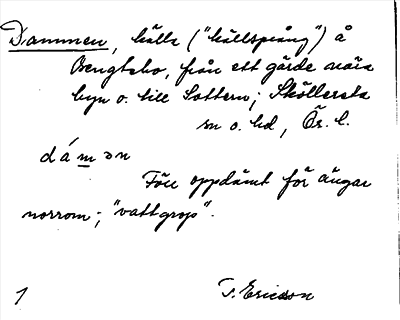 Dammen, källa ("källspräng") å
Bengtsbo, från ett gärde nära
byn o. till Sottern; Sköllersta
sn o. hd, Ör. l.
dámən
Förr oppdämt för ängar
norrom; "vattgrop".
T. Ericsson
1